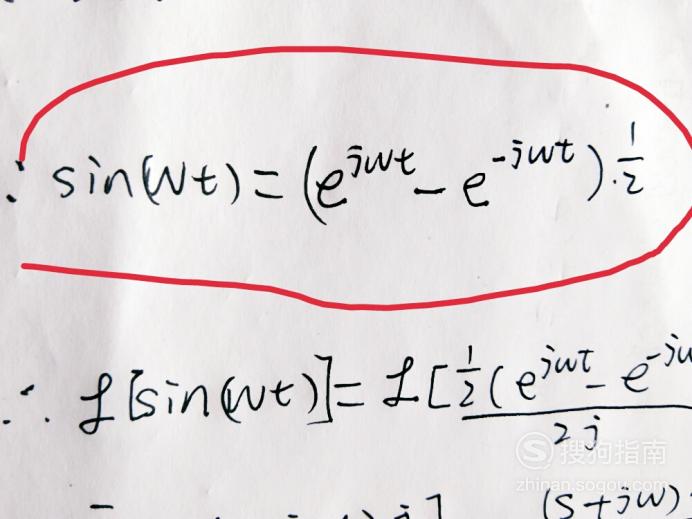 ∵ sin(wt) = (e^{jwt} - e^{-jwt})·\frac{1}{2}
∴ ℒ[sin(wt)] = ℒ[\frac{\frac{1}{2}(e^{jwt} - e^{-jw}}{2j}
搜狗指南
zhinan.sogou.com
(s+jw)